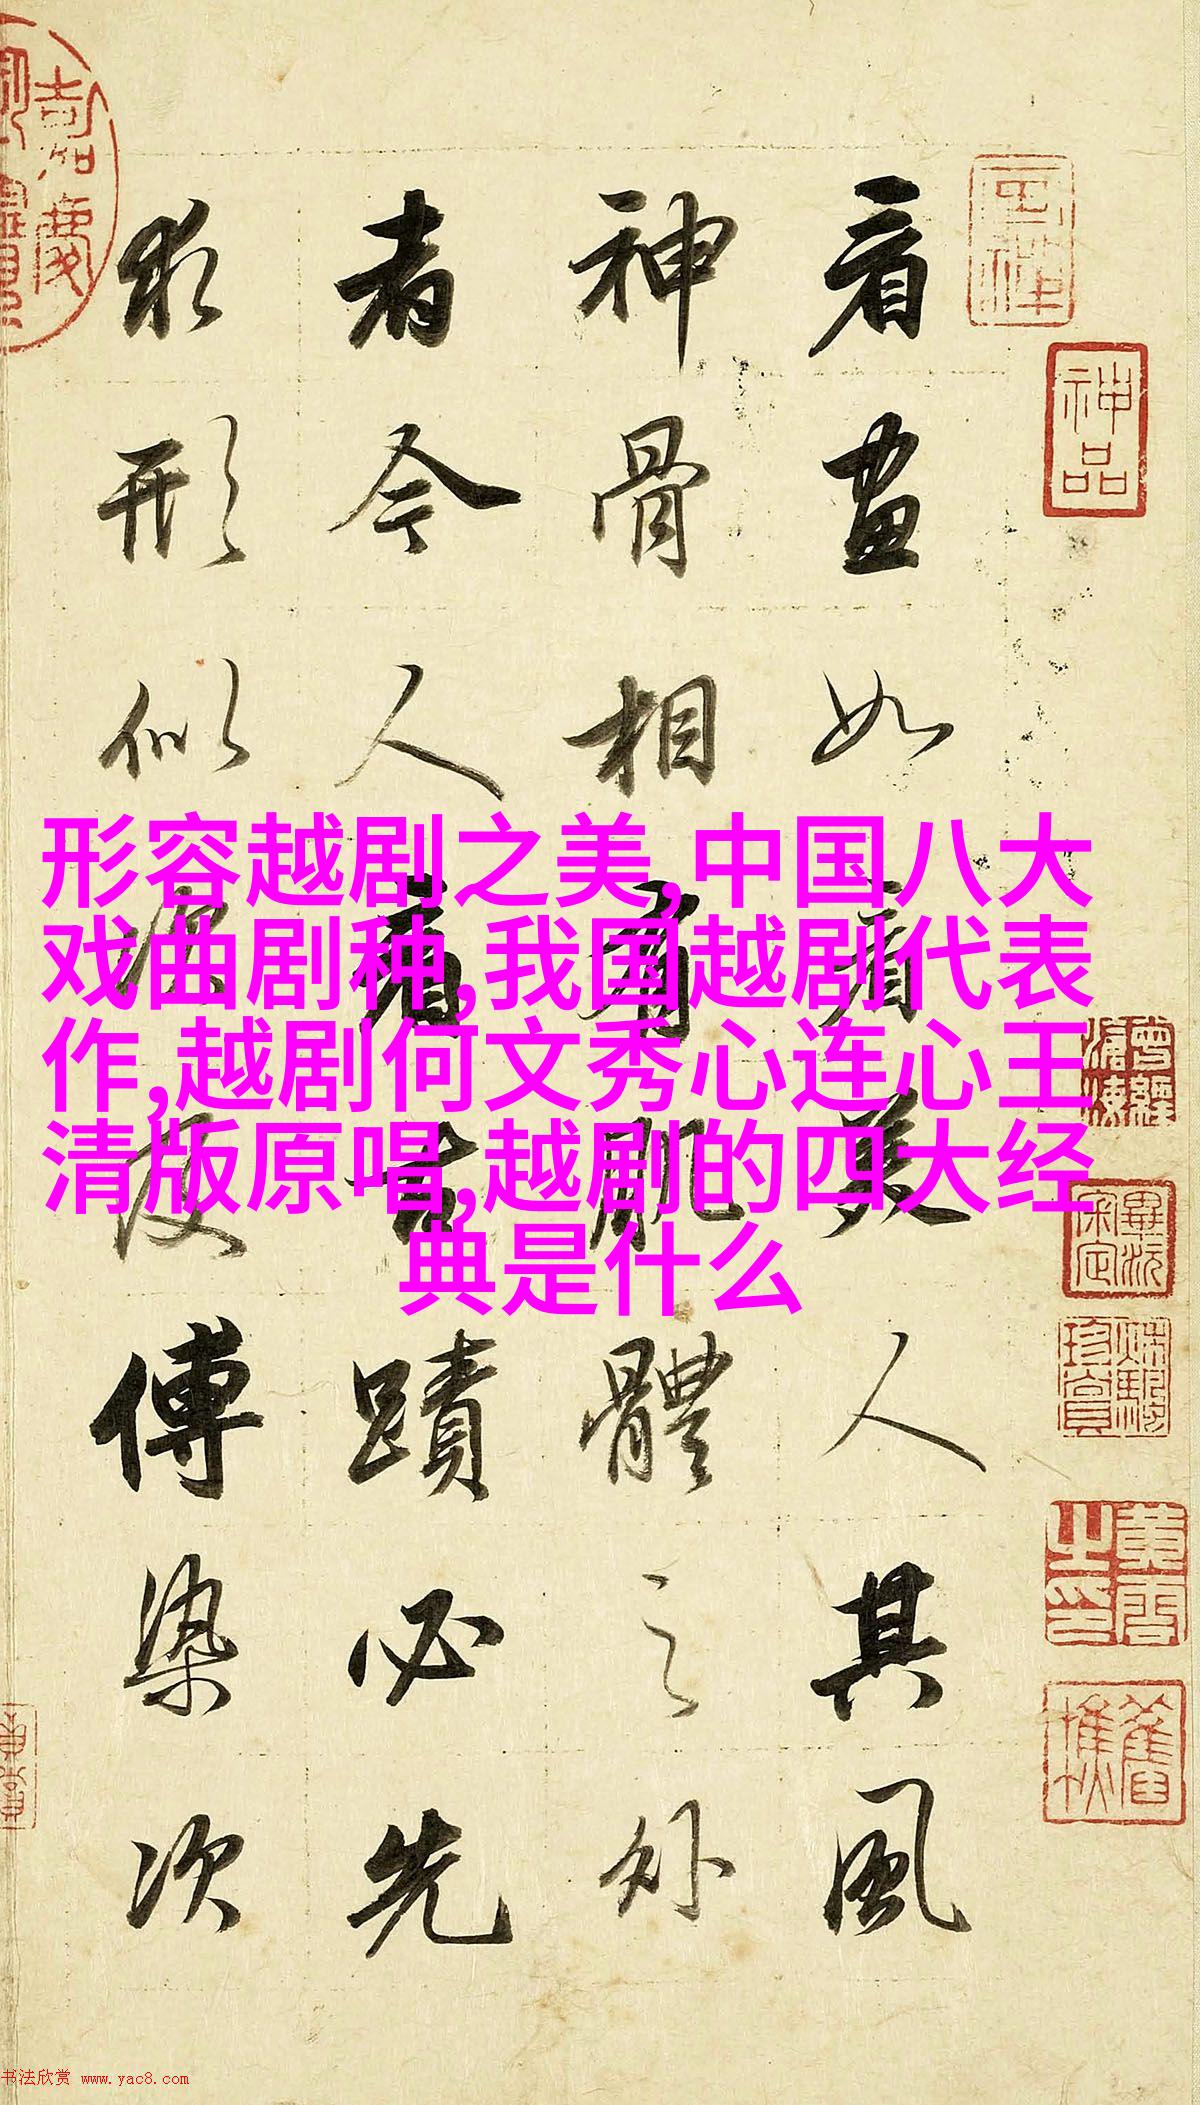 神品
看畫如看美人其風
神骨相有肌體之外
者今人看古蹟必先
求形似次及傅染次
嘉慶
形容越剧之美,中国八大
戏曲剧种,我国越剧代表
作,越剧何文秀心连心王
清版原唱,越剧的四大经
典是什么
畢沅
審定
书法欣赏 www.yac8.com